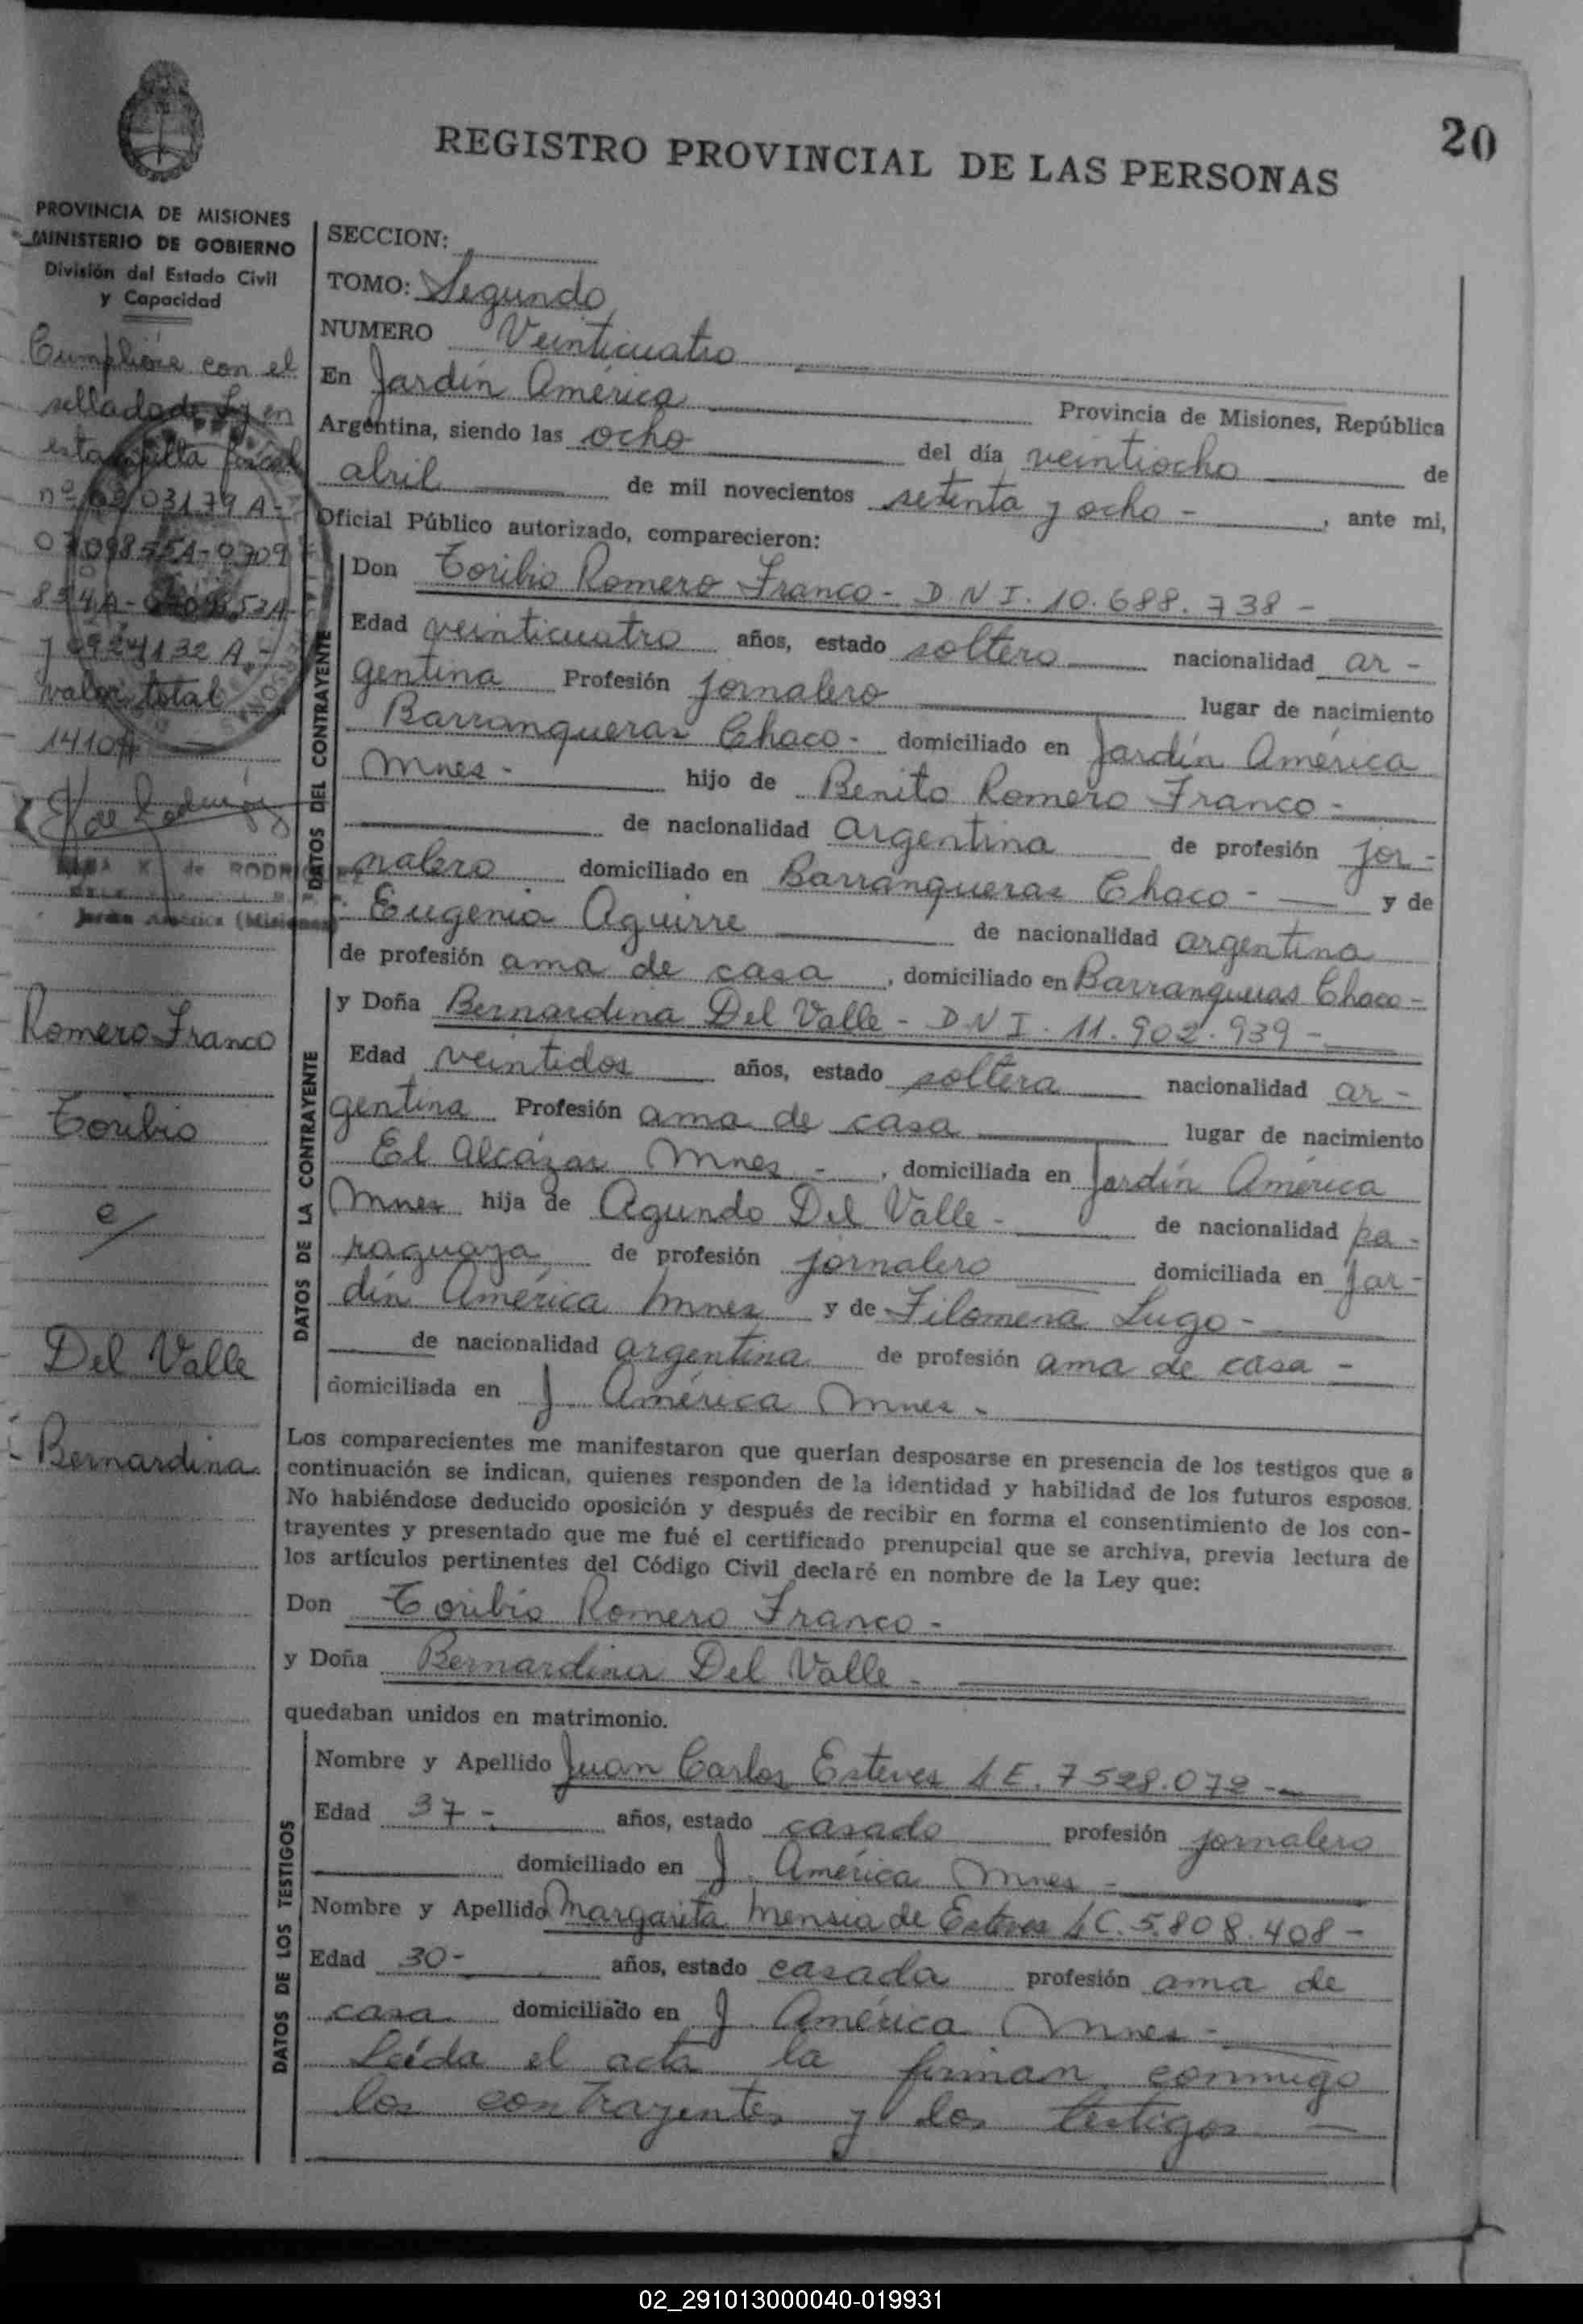 20
REGISTRO PROVINCIAL DE LAS PERSONAS
PROVINCIA DE MISIONES
MINISTERIO DE GOBIERNO
División del Estado Civil
y Capacidad
Cumplióse con el
sellado de Ley en
estampilla fiscal
valor total
1410
RODRIGUEZ
Jardín América (Misiones)
Romero Franco
Toribio
e/
Del Valle
Bernardina
SECCION:
TOMO: Segundo
NUMERO Veinticuatro
En Jardín América Provincia de Misiones, República
Argentina, siendo las ocho del día veintiocho de
abril de mil novecientos setenta y ocho - , ante mi,
Oficial Público autorizado, comparecieron:
DATOS DEL CONTRAYENTE
Don Toribio Romero Franco - D N I. 10.688.738 -
Edad veinticuatro años, estado soltero nacionalidad ar -
gentina Profesión jornalero lugar de nacimiento
Barranqueras Chaco - domiciliado en Jardín América
Mnes - hijo de Benito Romero Franco -
de nacionalidad argentina de profesión jor -
nalero domiciliado en Barranqueras Chaco - y de
Eugenia Aguirre de nacionalidad argentina
de profesión ama de casa , domiciliado en Barranqueras Chaco -
DATOS DE LA CONTRAYENTE
y Doña Bernardina Del Valle - D N I. 11.902.939 -
Edad veintidos años, estado soltera nacionalidad ar -
gentina Profesión ama de casa lugar de nacimiento
El Alcázar Mnes - , domiciliada en Jardín América
Mnes hija de Agundo Del Valle - de nacionalidad pa -
raguaya de profesión jornalero domiciliada en Jar -
dín América Mnes y de Filomena Lugo -
de nacionalidad argentina de profesión ama de casa -
domiciliada en J. América Mnes -
Los comparecientes me manifestaron que querían desposarse en presencia de los testigos que a
continuación se indican, quienes responden de la identidad y habilidad de los futuros esposos.
No habiéndose deducido oposición y después de recibir en forma el consentimiento de los con-
trayentes y presentado que me fué el certificado prenupcial que se archiva, previa lectura de
los artículos pertinentes del Código Civil declaré en nombre de la Ley que:
Don Toribio Romero Franco -
y Doña Bernardina Del Valle -
quedaban unidos en matrimonio.
DATOS DE LOS TESTIGOS
Nombre y Apellido Juan Carlos Esteves L E. 7528.072 -
Edad 37 - años, estado casado profesión jornalero
domiciliado en J. América Mnes -
Nombre y Apellido Margarita Mensia de Esteves L C. 5.808.408 -
Edad 30 - años, estado casada profesión ama de
casa domiciliado en J. América Mnes -
Leída el acta la firman conmigo
los contrayentes y los testigos -
02_291013000040-019931